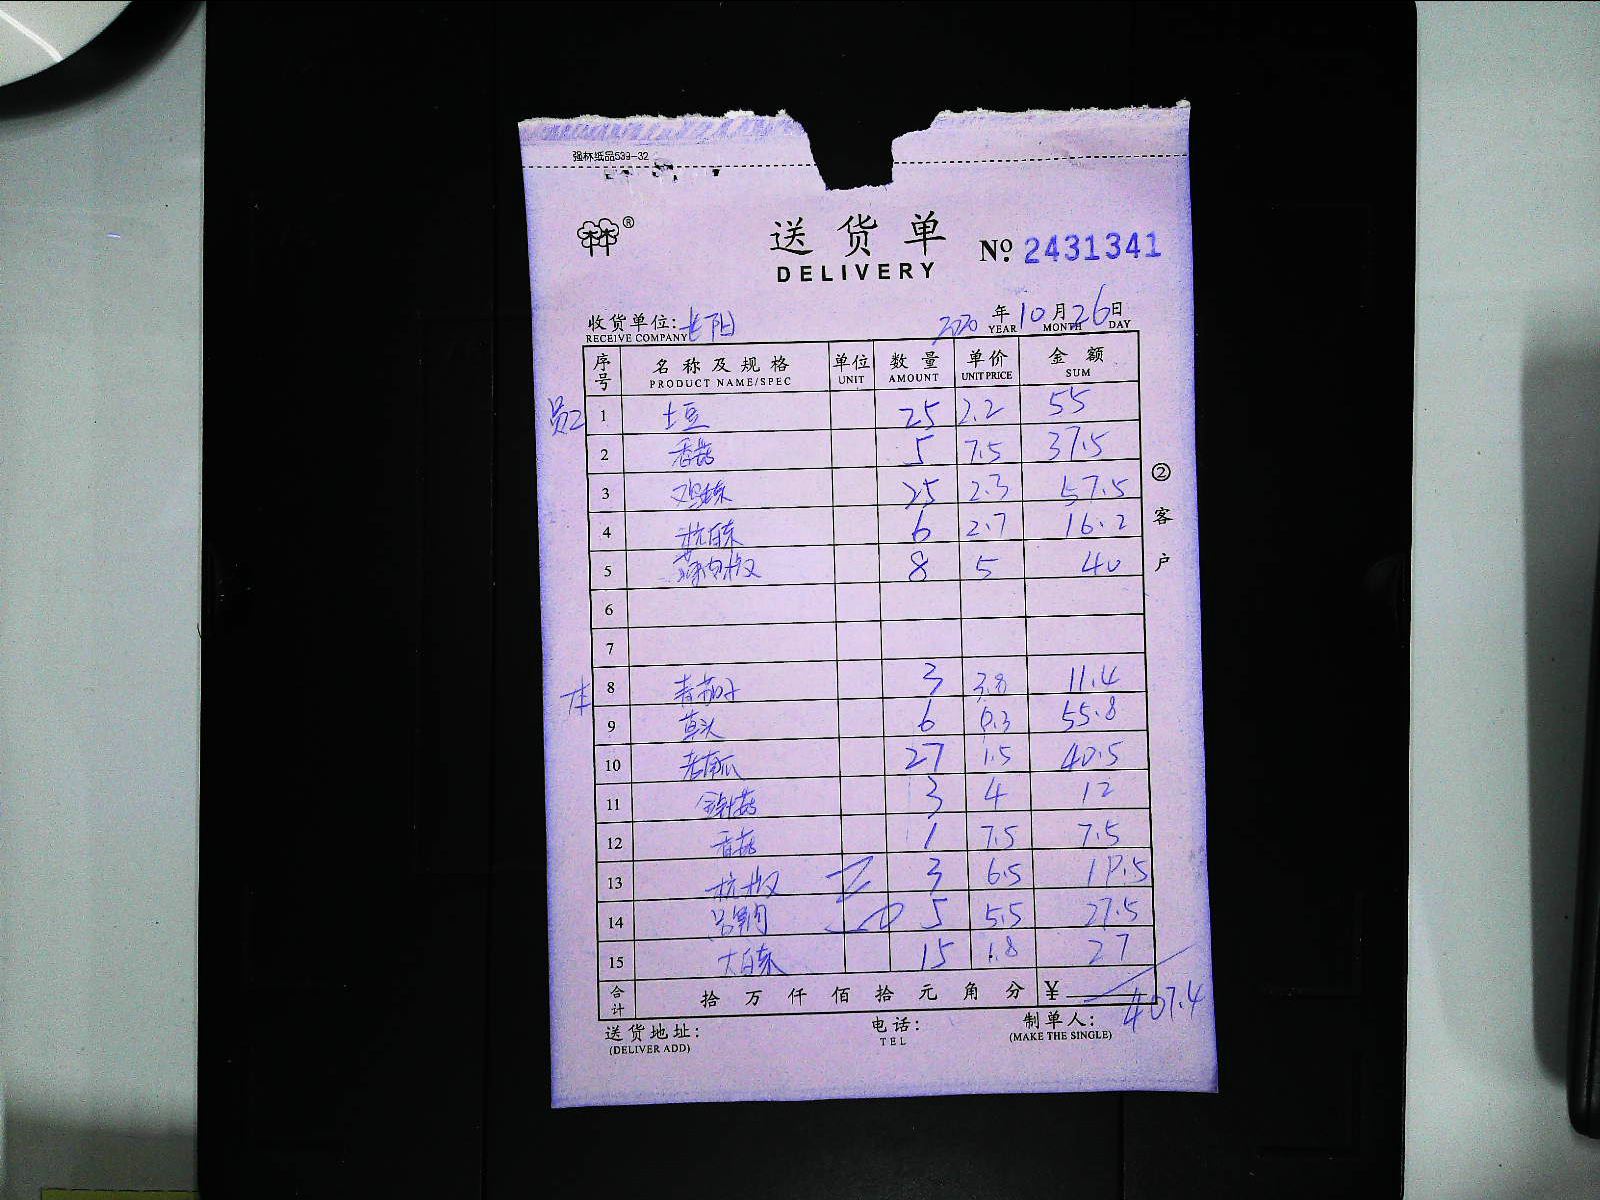 强林纸品539-32
®
送货单 № 2431341
DELIVERY
收货单位: 长阳 2020 年 10 月 26 日
RECEIVE COMPANY YEAR MONTH DAY
序号 名称及规格 单位 数量 单价 金额
PRODUCT NAME/SPEC UNIT AMOUNT UNIT PRICE SUM
员工 1 土豆 25 2.2 55
2 香菇 5 7.5 37.5
3 25 2.3 57.5
4 杭白菜 6 2.7 16.2
5 薄肉椒 8 5 40
6
7
8 青茄子 3 3.8 11.4
9 草头 6 9.3 55.8
10 老南瓜 27 1.5 40.5
11 金针菇 3 4 12
12 香菇 1 7.5 7.5
13 杭椒 3 6.5 19.5
14 5 5.5 27.5
15 大白菜 15 1.8 27
合计 拾万仟佰拾元角分 ¥ 407.4
② 客户
送货地址: 电话: 制单人:
(DELIVER ADD) TEL (MAKE THE SINGLE)